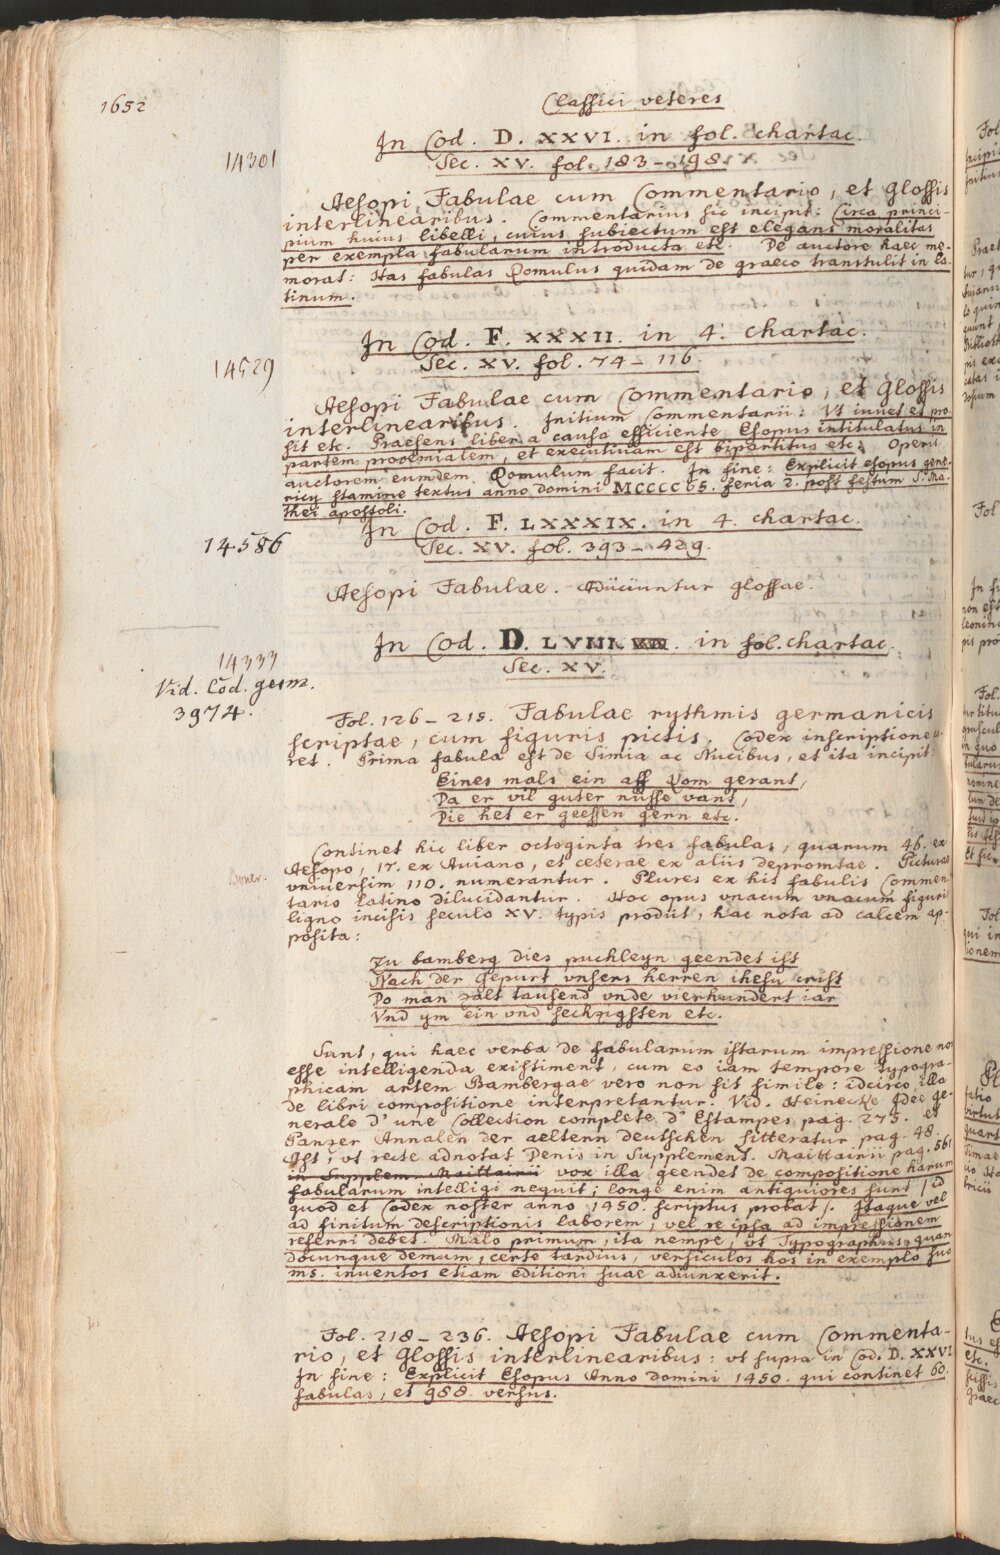 1652
Classici veteres
14301
In Cod. D. XXVI. in fol. chartac.
Sec. XV. fol. 183-198.
Aesopi Fabulae cum Commentario, et Glossis
interlinearibus. Commentarius sic incipit: Circa princi-
pium huius libelli, cuius subiectum est elegans moralitas
per exempla fabularum introducta etc. De auctore haec me-
morat: Has fabulas Romulus quidam de graeco transtulit in la-
tinum.
14529
In Cod. F. XXXII. in 4. chartac.
Sec. XV. fol. 74-116.
Aesopi Fabulae cum Commentario, et Glossis
interlinearibus. Initium Commentarii: Vt iuuet et pro-
sit etc. Praesens liber a causa efficiente Esopus intitulatus in
partem prooemialem, et executiuam est bipartitus etc. Operis
auctorem eumdem Romulum facit. In fine: Explicit esopus gene-
ricy stamine textus anno domini MCCCC65. feria 2. post festum S. Ma-
thei apostoli.
14586
In Cod. F. LXXXIX. in 4. chartac.
Sec. XV. fol. 393-429.
Aesopi Fabulae. Adiiciuntur glossae.
14333
Vid. Cod. germ.
3974.
In Cod. D. in fol. chartac.
Sec. XV.
Fol. 126-218. Fabulae rythmis germanicis
scriptae, cum figuris pictis. Codex inscriptione ca-
ret. Prima fabula est de Simia ac Nucibus, et ita incipit:
Eines mals ein aff kom gerant,
Da er vil guter nüsse vant,
Die het er geessen gern etc.
Continet hic liber octoginta tres fabulas, quarum 46. ex
Boner.
Aesopo, 17. ex Auiano, et ceterae ex aliis depromtae. Picturae
vniuersim 110. numerantur. Plures ex his fabulis Commen-
tario latino dilucidantur. Hoc opus vnacum vnacum figuris
ligno incisis seculo XV. typis prodiit, hac nota ad calcem ap-
posita:
Zu bamberg dies puchleyn geendet ist
Nach der gepurt vnsers herren ihesu crist
Do man zalt tausend vnde vierhundert iar
Vnd ym ein vnd sechzigsten etc.
Sunt, qui haec verba de fabularum istarum impressione non
esse intelligenda existiment, cum eo iam tempore typogra-
phicam artem Bambergae vero non sit simile: idcirco illa
de libri compositione interpretantur. Vid. Heinecke Idee ge-
nerale d'une Collection complete d'Estampes pag. 275. et
Panzer Annalen der aeltern deutschen litteratur pag. 48.
Ast, vt recte adnotat Denis in Supplement. Maittairii pag. 561
in Supplem. Maittairii vox illa geendet de compositione harum
fabularum intelligi nequit; longe enim antiquiores sunt / id
quod et Codex noster anno 1450. scriptus probat /. Itaque vel
ad finitum descriptionis laborem, vel re ipsa ad impressionem
referri debet. Malo primum, ita nempe, vt Typographus, quan-
docunque demum, certe tardius, versiculos hos in exemplo suo
ms. inuentos etiam editioni suae adiunxerit.
Fol. 218-236. Aesopi Fabulae cum Commenta-
rio, et Glossis interlinearibus: vt supra in Cod. D. XXVI.
In fine: Explicit Esopus Anno domini 1450. qui continet 60.
fabulas, et 988. versus.